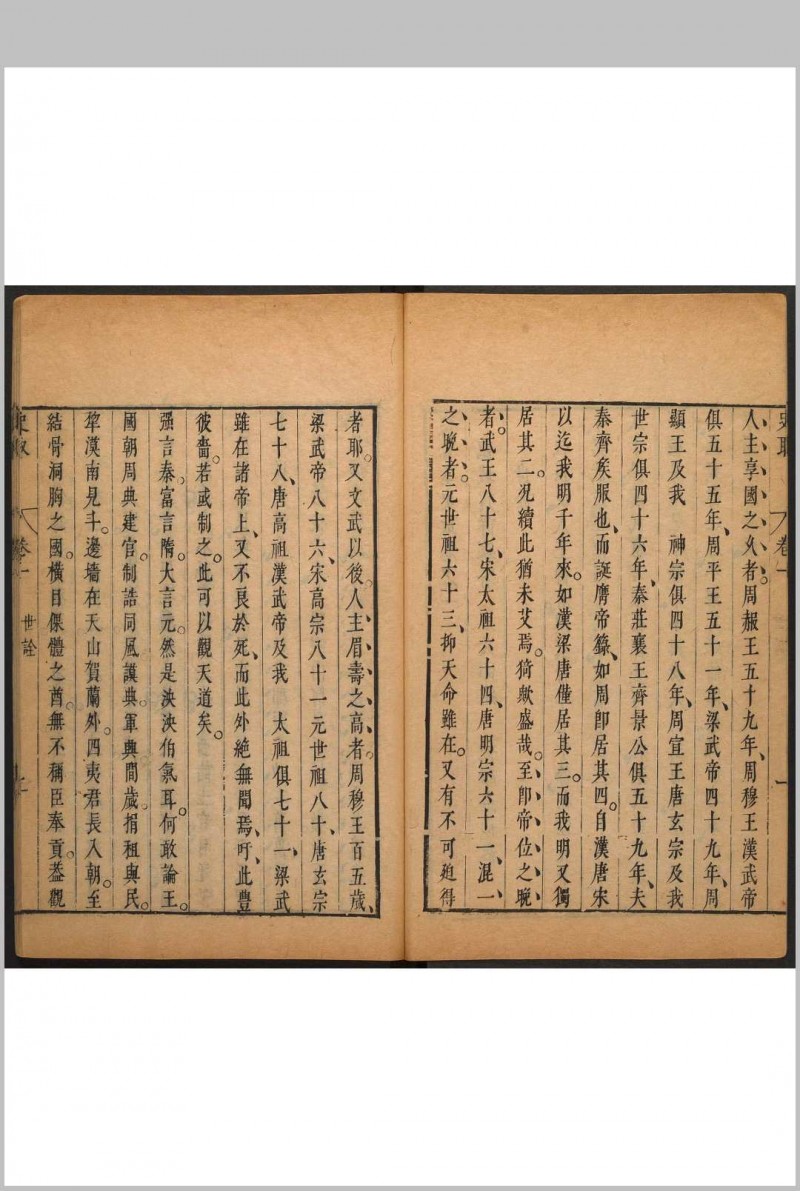 史取 卷一
人主享國之久者。周赧王五十九年、周穆王漢武帝
俱五十五年、周平王五十一年、梁武帝四十九年、周
顯王及我 神宗俱四十八年、周宣王唐玄宗及我
世宗俱四十六年、秦莊襄王齊景公俱五十九年、夫
秦齊矦服也、而誕膺帝籙、如周卽居其四。自漢唐宋
以迄我明千年來。如漢梁唐僅居其三。而我明又獨
居其二。況續此猶未艾焉。猗歟盛哉。至卽帝位之晚
者。武王八十七、宋太祖六十四、唐明宗六十一、混一
之晚者。元世祖六十三、抑天命雖在。又有不可廹得
者耶。又文武以後。人主眉壽之高者。周穆王百五歲、
梁武帝八十六、宋高宗八十一元世祖八十、唐玄宗
七十八、唐高祖漢武帝及我 太祖俱七十一、梁武
雖在諸帝上、又不良於死、而此外絶無聞焉、吁、此豊
彼嗇。若或制之。此可以觀天道矣。
强言秦、富言隋。大言元。然是泱泱伯氣耳。何敢論王。
國朝周典建官。制誥同風謨典。軍興間歲。捐租與民。
犂漠南見斗。邊墻在天山賀蘭外。四夷君長入朝。至
結骨洞胸之國。橫目倮體之酋。無不稱臣奉貢。葢觀
史取 卷一 世詮